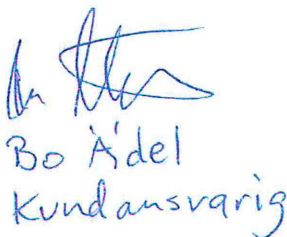 Bo Ädel
Kundansvarig